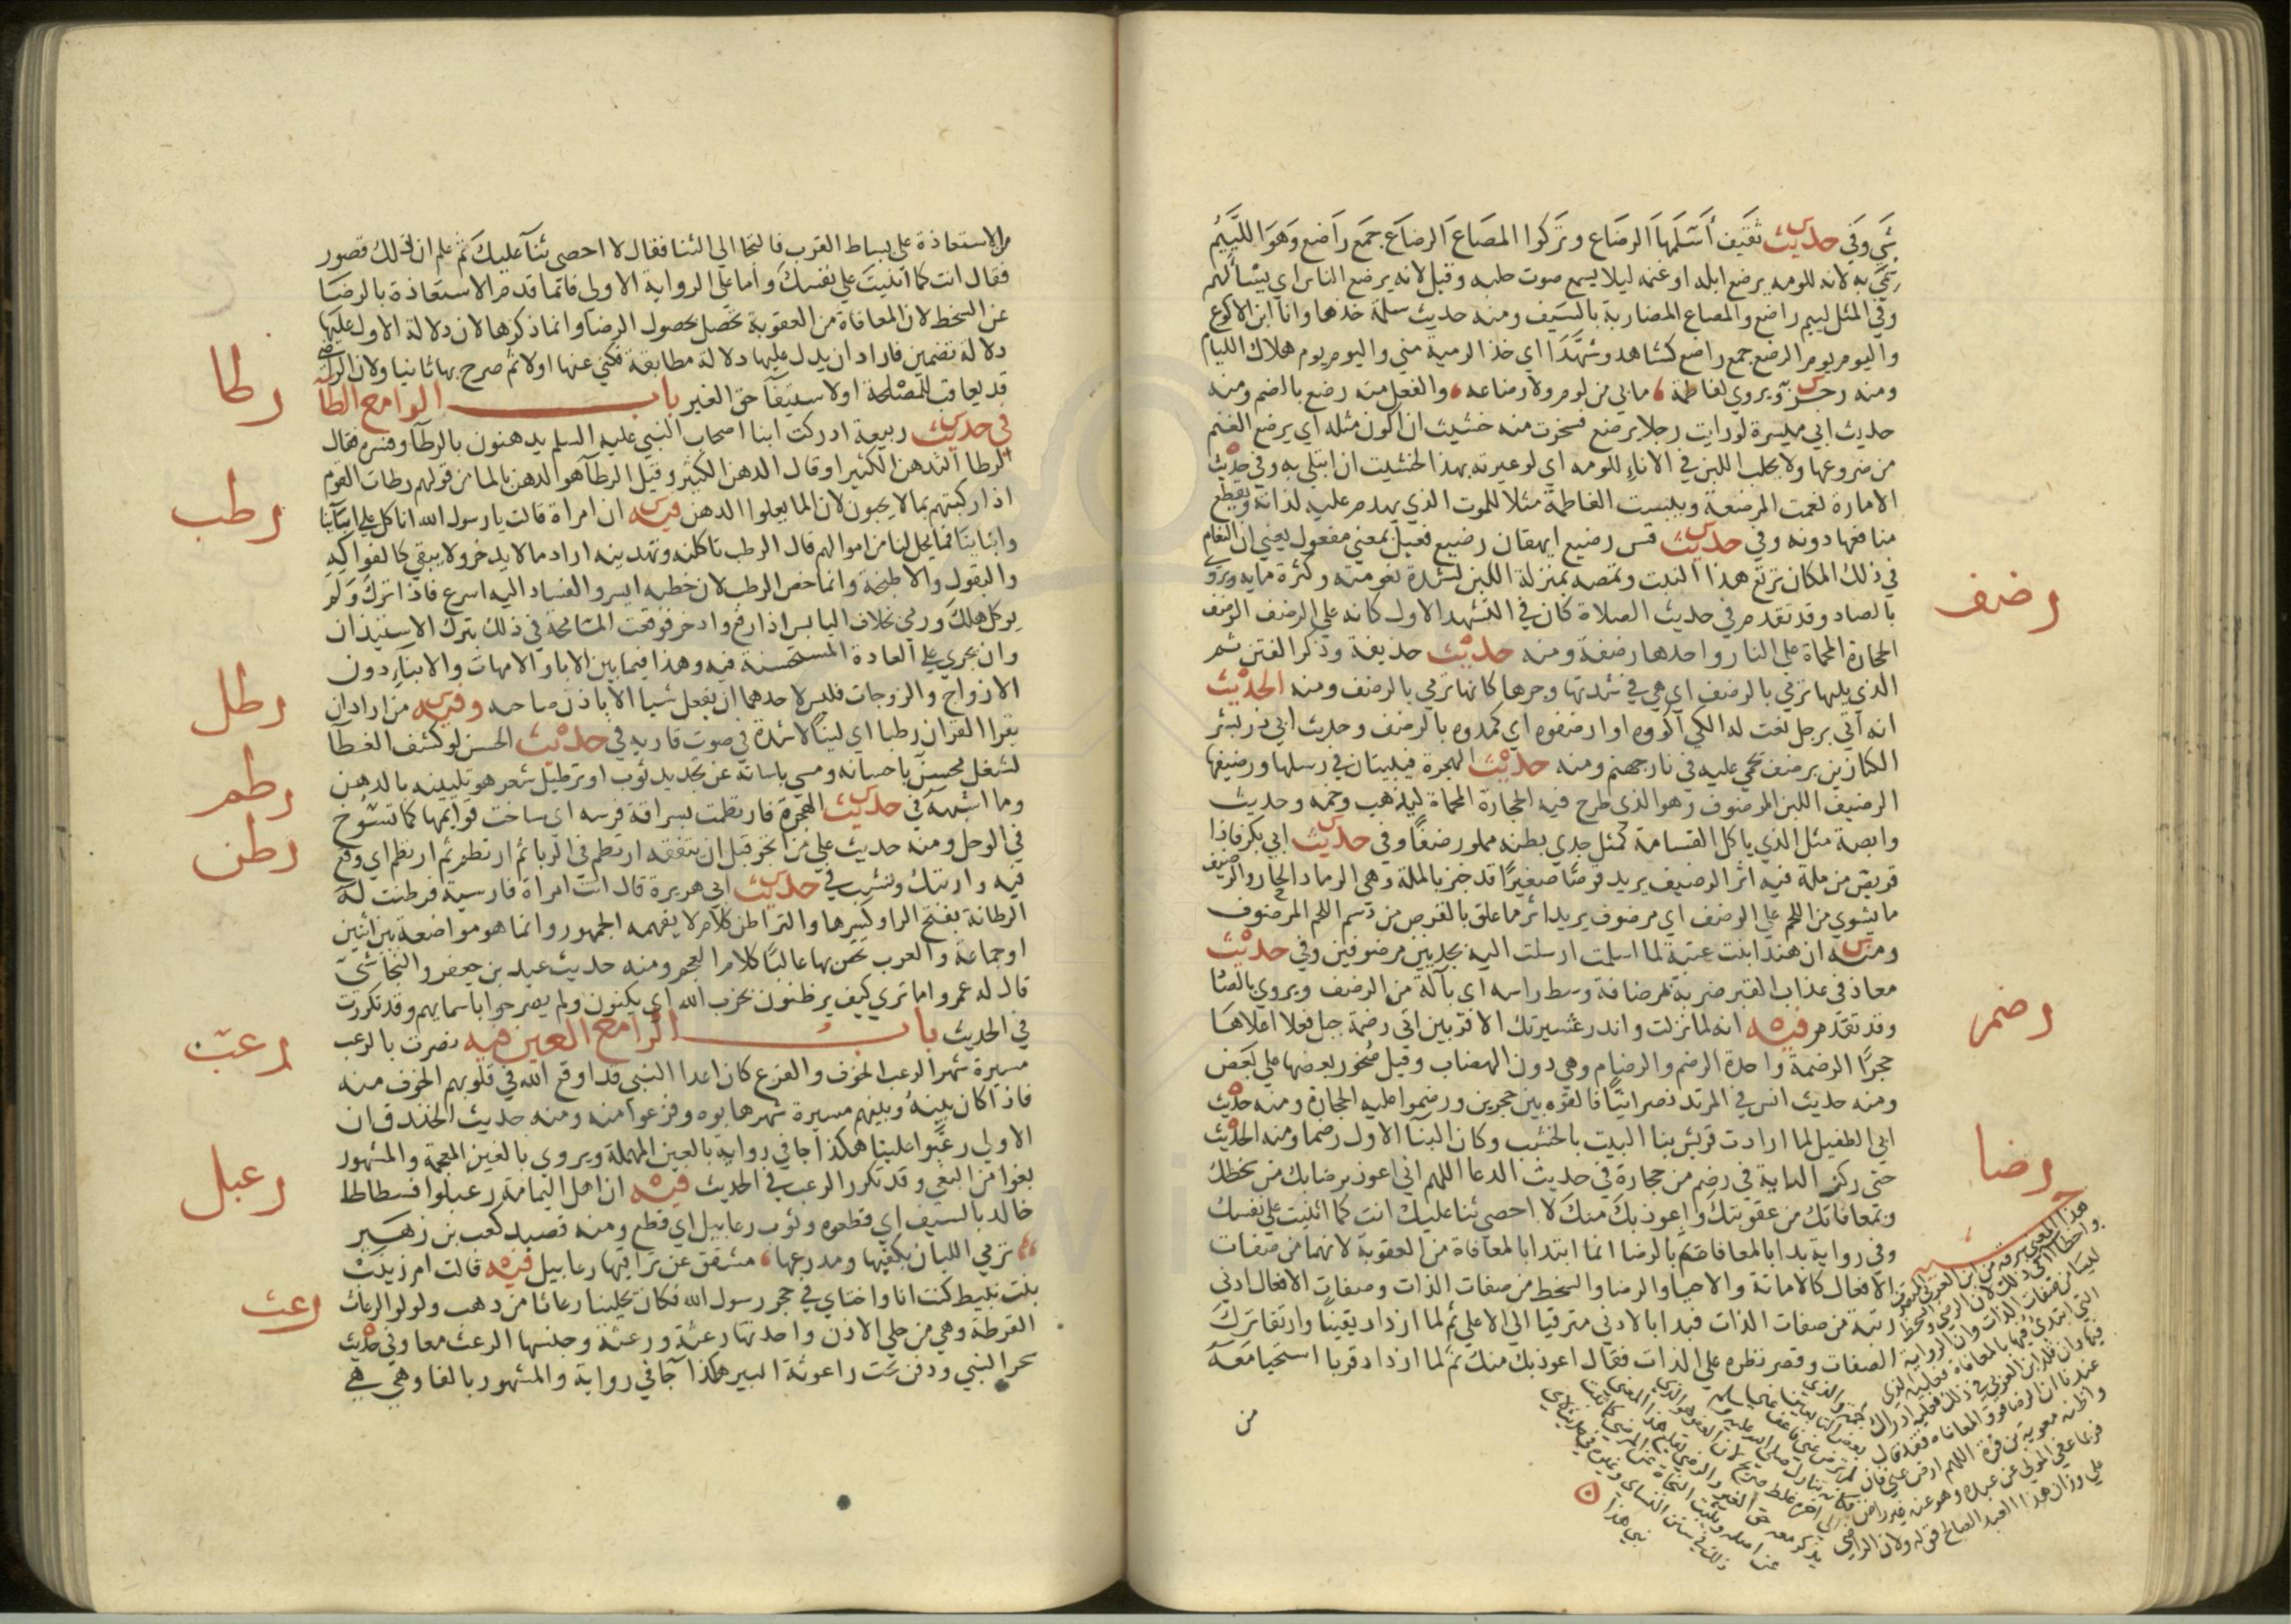 شي وفي حديث ثقيف أسلمها الرضاع وتركوا المصاع الرضاع جمع راضع وهو اللئيم
سمي به لانه للومه يرضع ابله او غنمه ليلا يسمع صوت حلبه وقيل لانه يرضع الناس اي يسألهم
وفي المثل لييم راضع والمصاع المضاربة بالسيف ومنه حديث سلمة خذها وانا ابن الاكوع
واليوم يوم الرضع جمع راضع كشاهد وشهد اي خذ الرمية مني واليوم يوم هلاك الليام
ومنه رجز ويروى لفاطمة ما بي من لوم ولا رضاعه والفعل منه رضع بالضم ومنه
حديث ابي ميسرة لو رايت رجلا يرضع فسخرت منه خشيت ان اكون مثله اي يرضع الغنم
من ضروعها ولا يحلب اللبن في الاناء للومه اي لو عيرته بهذا لخشيت ان ابتلى به وفي حديث
الامارة نعمت المرضعة وبيست الفاطمة مثلا للموت الذي يهدم عليه لذاته ويقطع
منافعها دونه وفي حديث قس رضيع ايهقان رضيع فعيل بمعنى مفعول يعني ان النعام
في ذلك المكان ترتع هذا النبت وتمصه بمنزلة اللبن لشدة نعومته وكثرة مايه ويروى
بالصاد وقد تقدم في حديث الصلاة كان في التشهد الاول كانه على الرضف الرضف
الحجارة المحماة على النار واحدها رضفة ومنه حديث حذيفة وذكر الفتن ثم
الذي يليها ترمي بالرضف اي هي في شدتها وحرها كانها ترمي بالرضف ومنه الحديث
انه اتي برجل نعت له الكي اكووه او ارضفوه اي كمدوه بالرضف وحديث ابي ذر بشر
الكنازين برضف يحمى عليه في نار جهنم ومنه حديث الهجرة فيبيتان في رسلها ورضيفها
الرضيف اللبن المرضوف وهو الذي طرح فيه الحجارة المحماة ليذهب وخمه وحديث
وابصة مثل الذي ياكل القسامة كمثل جدي بطنه مملو رضفا وفي حديث ابي بكر فاذا
قريص من ملة فيه اثر الرضيف يريد قرصا صغيرا قد خبز بالملة وهي الرماد الحار والرضيف
ما يشوى من اللحم على الرضف اي مرضوف يريد اثر ما علق بالقرص من دسم اللحم المرضوف
ومنه ان هندا بنت عتبة لما اسلمت ارسلت اليه بجديين مرضوفين وفي حديث
معاذ في عذاب القبر ضربة بمرضافة وسط راسه اي بآلة من الرضف ويروى بالصاد
وقد تقدم فيه انه لما نزلت واندر عشيرتك الاقربين اتى رضمة جبل فعلا اعلاها
حجرا الرضمة واحدة الرضم والرضام وهي دون الهضاب وقيل صخور بعضها على بعض
ومنه حديث انس في المرتد نصرانيا فالقوه بين حجرين ورضموا عليه الحجارة ومنه حديث
ابي الطفيل لما ارادت قريش بنا البيت بالخشب وكان البنا الاول رضما ومنه الحديث
حتى ركز الراية في رضم من حجارة في حديث الدعا اللهم اني اعوذ برضاك من سخطك
وبمعافاتك من عقوبتك واعوذ بك منك لا احصي ثنا عليك انت كما اثنيت على نفسك
وفي رواية بدا بالمعافاة ثم بالرضا انما ابتدا بالمعافاة من العقوبة لانهما من صفات
الافعال كالاماتة والاحيا والرضا والسخط من صفات الذات وصفات الافعال ادنى
رتبة من صفات الذات فبدا بالادنى مترقيا الى الاعلى ثم لما ازداد يقينا وارتقا ترك
الصفات وقصر نظره على الذات فقال اعوذ بك منك ثم لما ازداد قربا استحيا معه
من
رضف
رضم
رضا
من الاستعاذة على بساط القرب فالتجا الى الثنا فقال لا احصي ثنا عليك ثم علم ان ذلك قصور
فقال انت كما اثنيت على نفسك وأما على الرواية الاولى فانما قدم الاستعاذة بالرضا
عن السخط لان المعافاة من العقوبة تحصل بحصول الرضا وانما ذكرها لان دلالة الاول عليها
دلالة تضمين فاراد ان يدل عليها دلالة مطابقة فكنى عنها اولا ثم صرح بها ثانيا ولان الراضي
قد يعاقب للمصلحة او لاستيفا حق الغير باب الرا مع الطا
في حديث ربيعة ادركت ابنا اصحاب النبي عليه السلم يدهنون بالرطا وفسره فقال
الرطا التدهن الكثير او قال الدهن الكثير وقيل الرطا هو الدهن بالما من قولهم رطات القوم
اذا ركبتهم بما لا يحبون لان الما يعلوا الدهن فيه ان امراة قالت يا رسول الله انا كل على ابائنا
وابنائنا فما يحل لنا من اموالهم قال الرطب تاكلنه وتهدينه اراد ما لا يدخر ولا يبقى كالفواكه
والبقول والاطبخة وانما خص الرطب لان خطبه ايسر والفساد اليه اسرع فاذا ترك ولم
يوكل هلك ورمي بخلاف اليابس اذا رفع وادخر فوقعت المسامحة في ذلك بترك الاستيذان
وان يجري على العادة المستحسنة فيه وهذا فيما بين الابا والامهات والابناء دون
الازواج والزوجات فليس لاحدهما ان يفعل شيا الا باذن صاحبه وفيه من اراد ان
يقرا القران رطبا اي لينا لا شدة في صوت قاريه في حديث الحسن لو كشف الغطا
لشغل محسن باحسانه ومسي باساته عن تجديد ثوب او ترطيل شعر هو تليينه بالدهن
وما اشبهه في حديث الهجرة فارتطمت بسراقة فرسه اي ساخت قوايمها كما تسوخ
في الوحل ومنه حديث علي من اتجر قبل ان يتفقه ارتطم في الربا ثم ارتطم ثم ارتطم اي وقع
فيه وارتبك ونشب في حديث ابي هريرة قال اتت امراة فارسية فرطنت له
الرطانة بفتح الرا وكسرها والتراطن كلام لا يفهمه الجمهور وانما هو مواضعة بين اثنين
او جماعة والعرب تخص بها غالبا كلام العجم ومنه حديث عبد بن جعفر والنجاشي
قال له عمرو اما ترى كيف يرطنون بحزب الله اي يكنون ولم يصرحوا باسمايهم وقد تكررت
في الحديث باب الرا مع العين فيه نصرت بالرعب
مسيرة شهر الرعب الخوف والفزع كان اعدا النبي قد اوقع الله في قلوبهم الخوف منه
فاذا كان بينه وبينهم مسيرة شهر هابوه وفزعوا منه ومنه حديث الخندق ان
الاولى رعبوا علينا هكذا جا في رواية بالعين المهملة ويروى بالغين المعجمة والمشهور
بغوا من البغي وقد تكرر الرعب في الحديث فيه ان اهل اليمامة رعبلوا فسطاط
خالد بالسيف اي قطعوه وثوب رعابيل اي قطع ومنه قصيد كعب بن زهير
ترمي اللبان بكفيها ومدرعها مشقق عن تراقيها رعابيل فيه قالت ام زينب
بنت نبيط كنت انا واختاي في حجر رسول الله فكان يحلينا رعاثا من ذهب ولولو الرعاث
القرطة وهي من حلي الاذن واحدتها رعثة ورعثة وجنسها الرعث معا وفي حديث
سحر النبي ودفن تحت راعوثة البير هكذا جا في رواية والمشهور بالفا وهي هي
رطا
رطب
رطل
رطم
رطن
رعب
رعبل
رعث